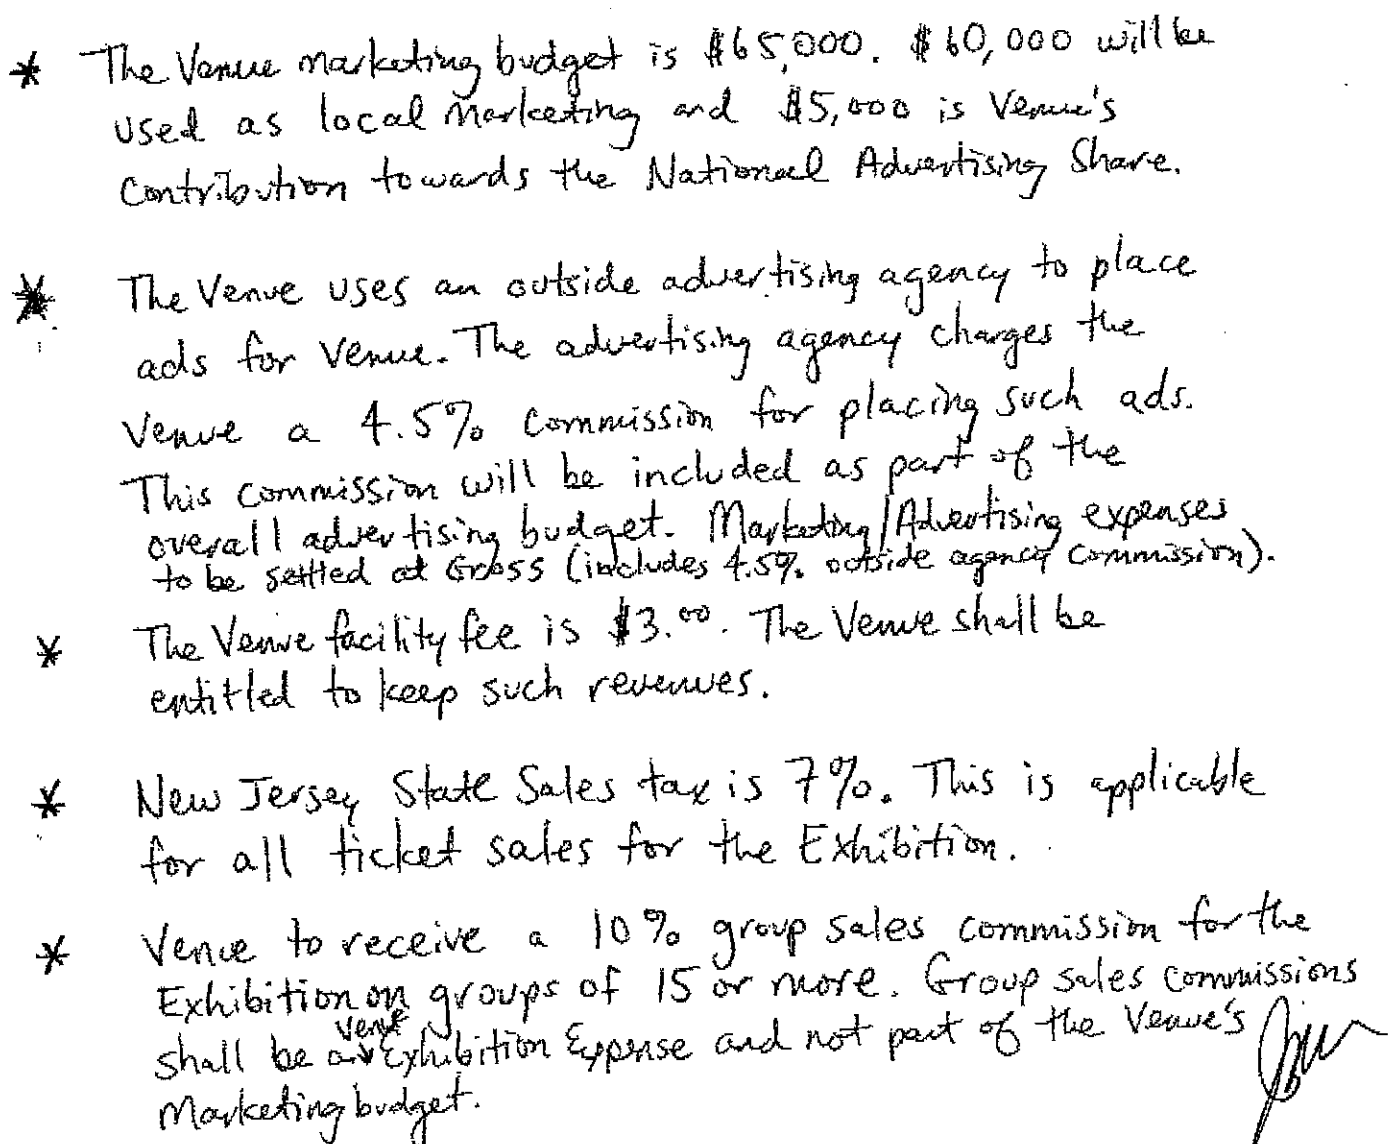 * The Venue marketing budget is $65,000. $60,000 will be
used as local marketing and $5,000 is Venue's
contribution towards the National Advertising Share.
* The Venue uses an outside advertising agency to place
ads for Venue. The advertising agency charges the
Venue a 4.5% commission for placing such ads.
This commission will be included as part of the
overall advertising budget. Marketing/Advertising expenses
to be settled at Gross (includes 4.5% outside agency commission).
* The Venue facility fee is $3.00. The Venue shall be
entitled to keep such revenues.
* New Jersey State Sales tax is 7%. This is applicable
for all ticket sales for the Exhibition.
* Venue to receive a 10% group sales commission for the
Exhibition on groups of 15 or more. Group sales commissions
venue
shall be a Exhibition Expense and not part of the Venue's
Marketing budget.